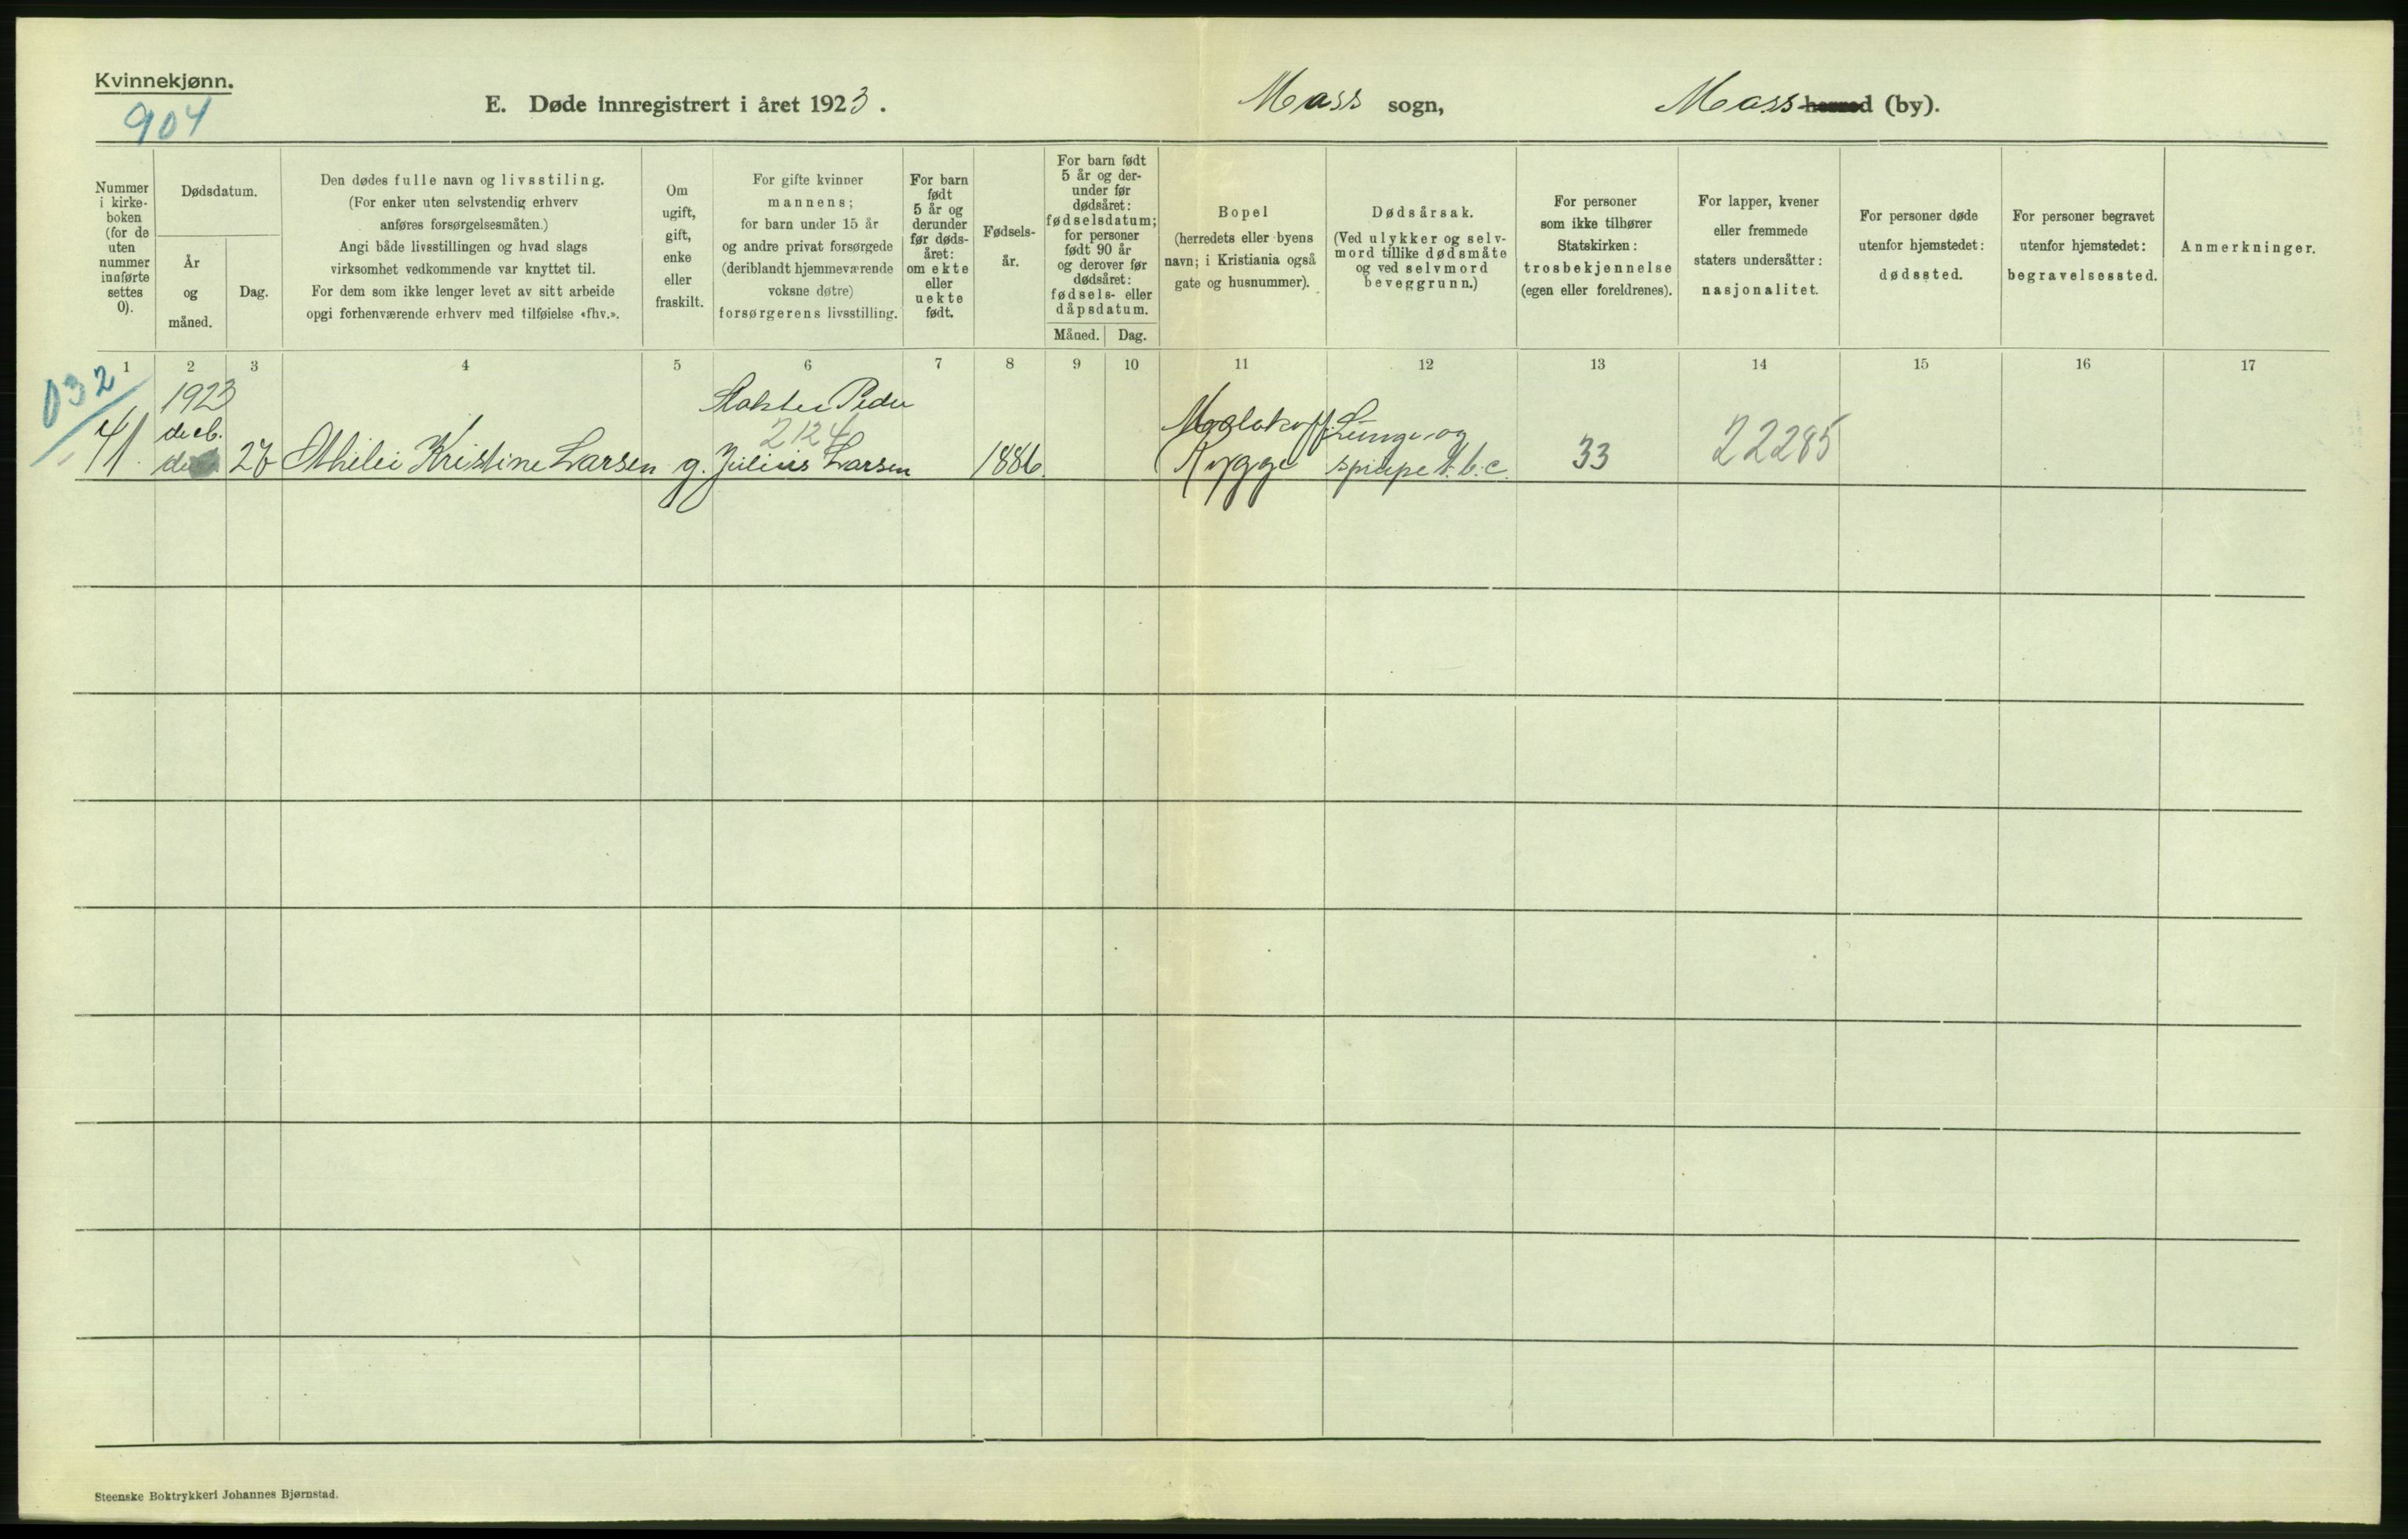 Kvinnekjønn.
904
E. Døde innregistrert i året 1923.
Moss sogn,
Moss herred (by).
Nummer i kirke-boken (for de uten nummer innførte settes 0).
Dødsdatum.
År og måned.
Dag.
Den dødes fulle navn og livsstiling.
(For enker uten selvstendig erhverv
anføres forsørgelsesmåten.)
Angi både livsstillingen og hvad slags
virksomhet vedkommende var knyttet til.
For dem som ikke lenger levet av sitt arbeide
opgi forhenværende erhverv med tilføielse «fhv.».
Om
ugift,
gift,
enke
eller
fraskilt.
For gifte kvinner
mannens;
for barn under 15 år
og andre privat forsørgede
(deriblandt hjemmeværende
voksne døtre)
forsørgerens livsstilling.
For barn
født
5 år og
derunder
før døds-
året:
om ekte
eller
uekte
født.
Fødsels-
år.
For barn født
5 år og der-
under før
dødsåret:
fødselsdatum;
for personer
født 90 år
og derover før
dødsåret:
fødsels- eller
dåpsdatum.
Måned.
Dag.
Bopel
(herredets eller byens
navn; i Kristiania også
gate og husnummer).
Dødsårsak.
(Ved ulykker og selv-
mord tillike dødsmåte
og ved selvmord
beveggrunn.)
For personer
som ikke tilhører
Statskirken:
trosbekjennelse
(egen eller foreldrenes).
For lapper, kvener
eller fremmede
staters undersåtter:
nasjonalitet.
For personer døde
utenfor hjemstedet:
dødssted.
For personer begravet
utenfor hjemstedet:
begravelsessted.
Anmerkninger.
1 2 3 4 5 6 7 8 9 10 11 12 13 14 15 16 17
032
1923
decb.
41. 27 Kristine Larsen g.
Peder
2124
Julius Larsen
1886.
Malakoff
Rygge
Lunge- og
t.b.c.
33
22285
Steenske Boktrykkeri Johannes Bjørnstad.